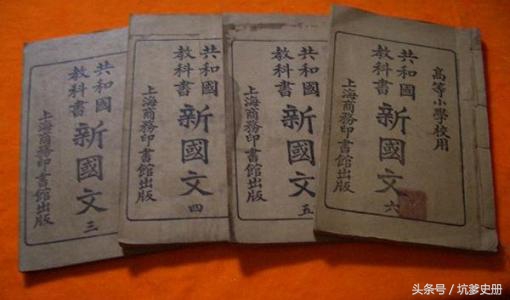 共和國
教科書
新國文 三
上海商務印書館出版
共和國
教科書
新國文 四
上海商務印書館出版
共和國
教科書
新國文 五
上海商務印書館出版
高等小學校用
共和國
教科書
新國文 六
上海商務印書館出版
头条号 / 坑爹史册